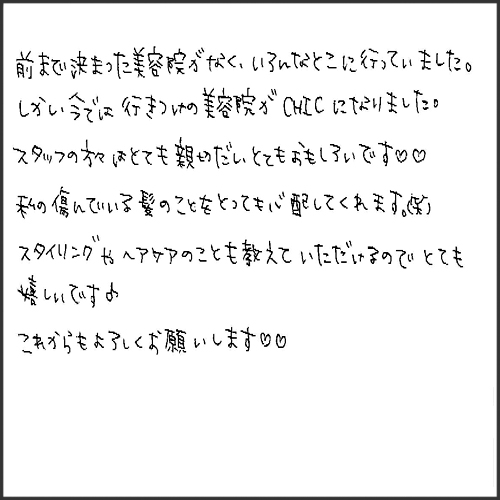 前まで決まった美容院がなく、いろんなとこに行っていました。
しかし今では行きつけの美容院がCHICになりました。
スタッフの方々はとても親切だしとてもおもしろいです♡♡
私の傷んでいる髪のことをとっても心配してくれます。(笑)
スタイリングやヘアケアのことも教えていただけるのでとても
嬉しいです♪
これからもよろしくお願いします♡♡